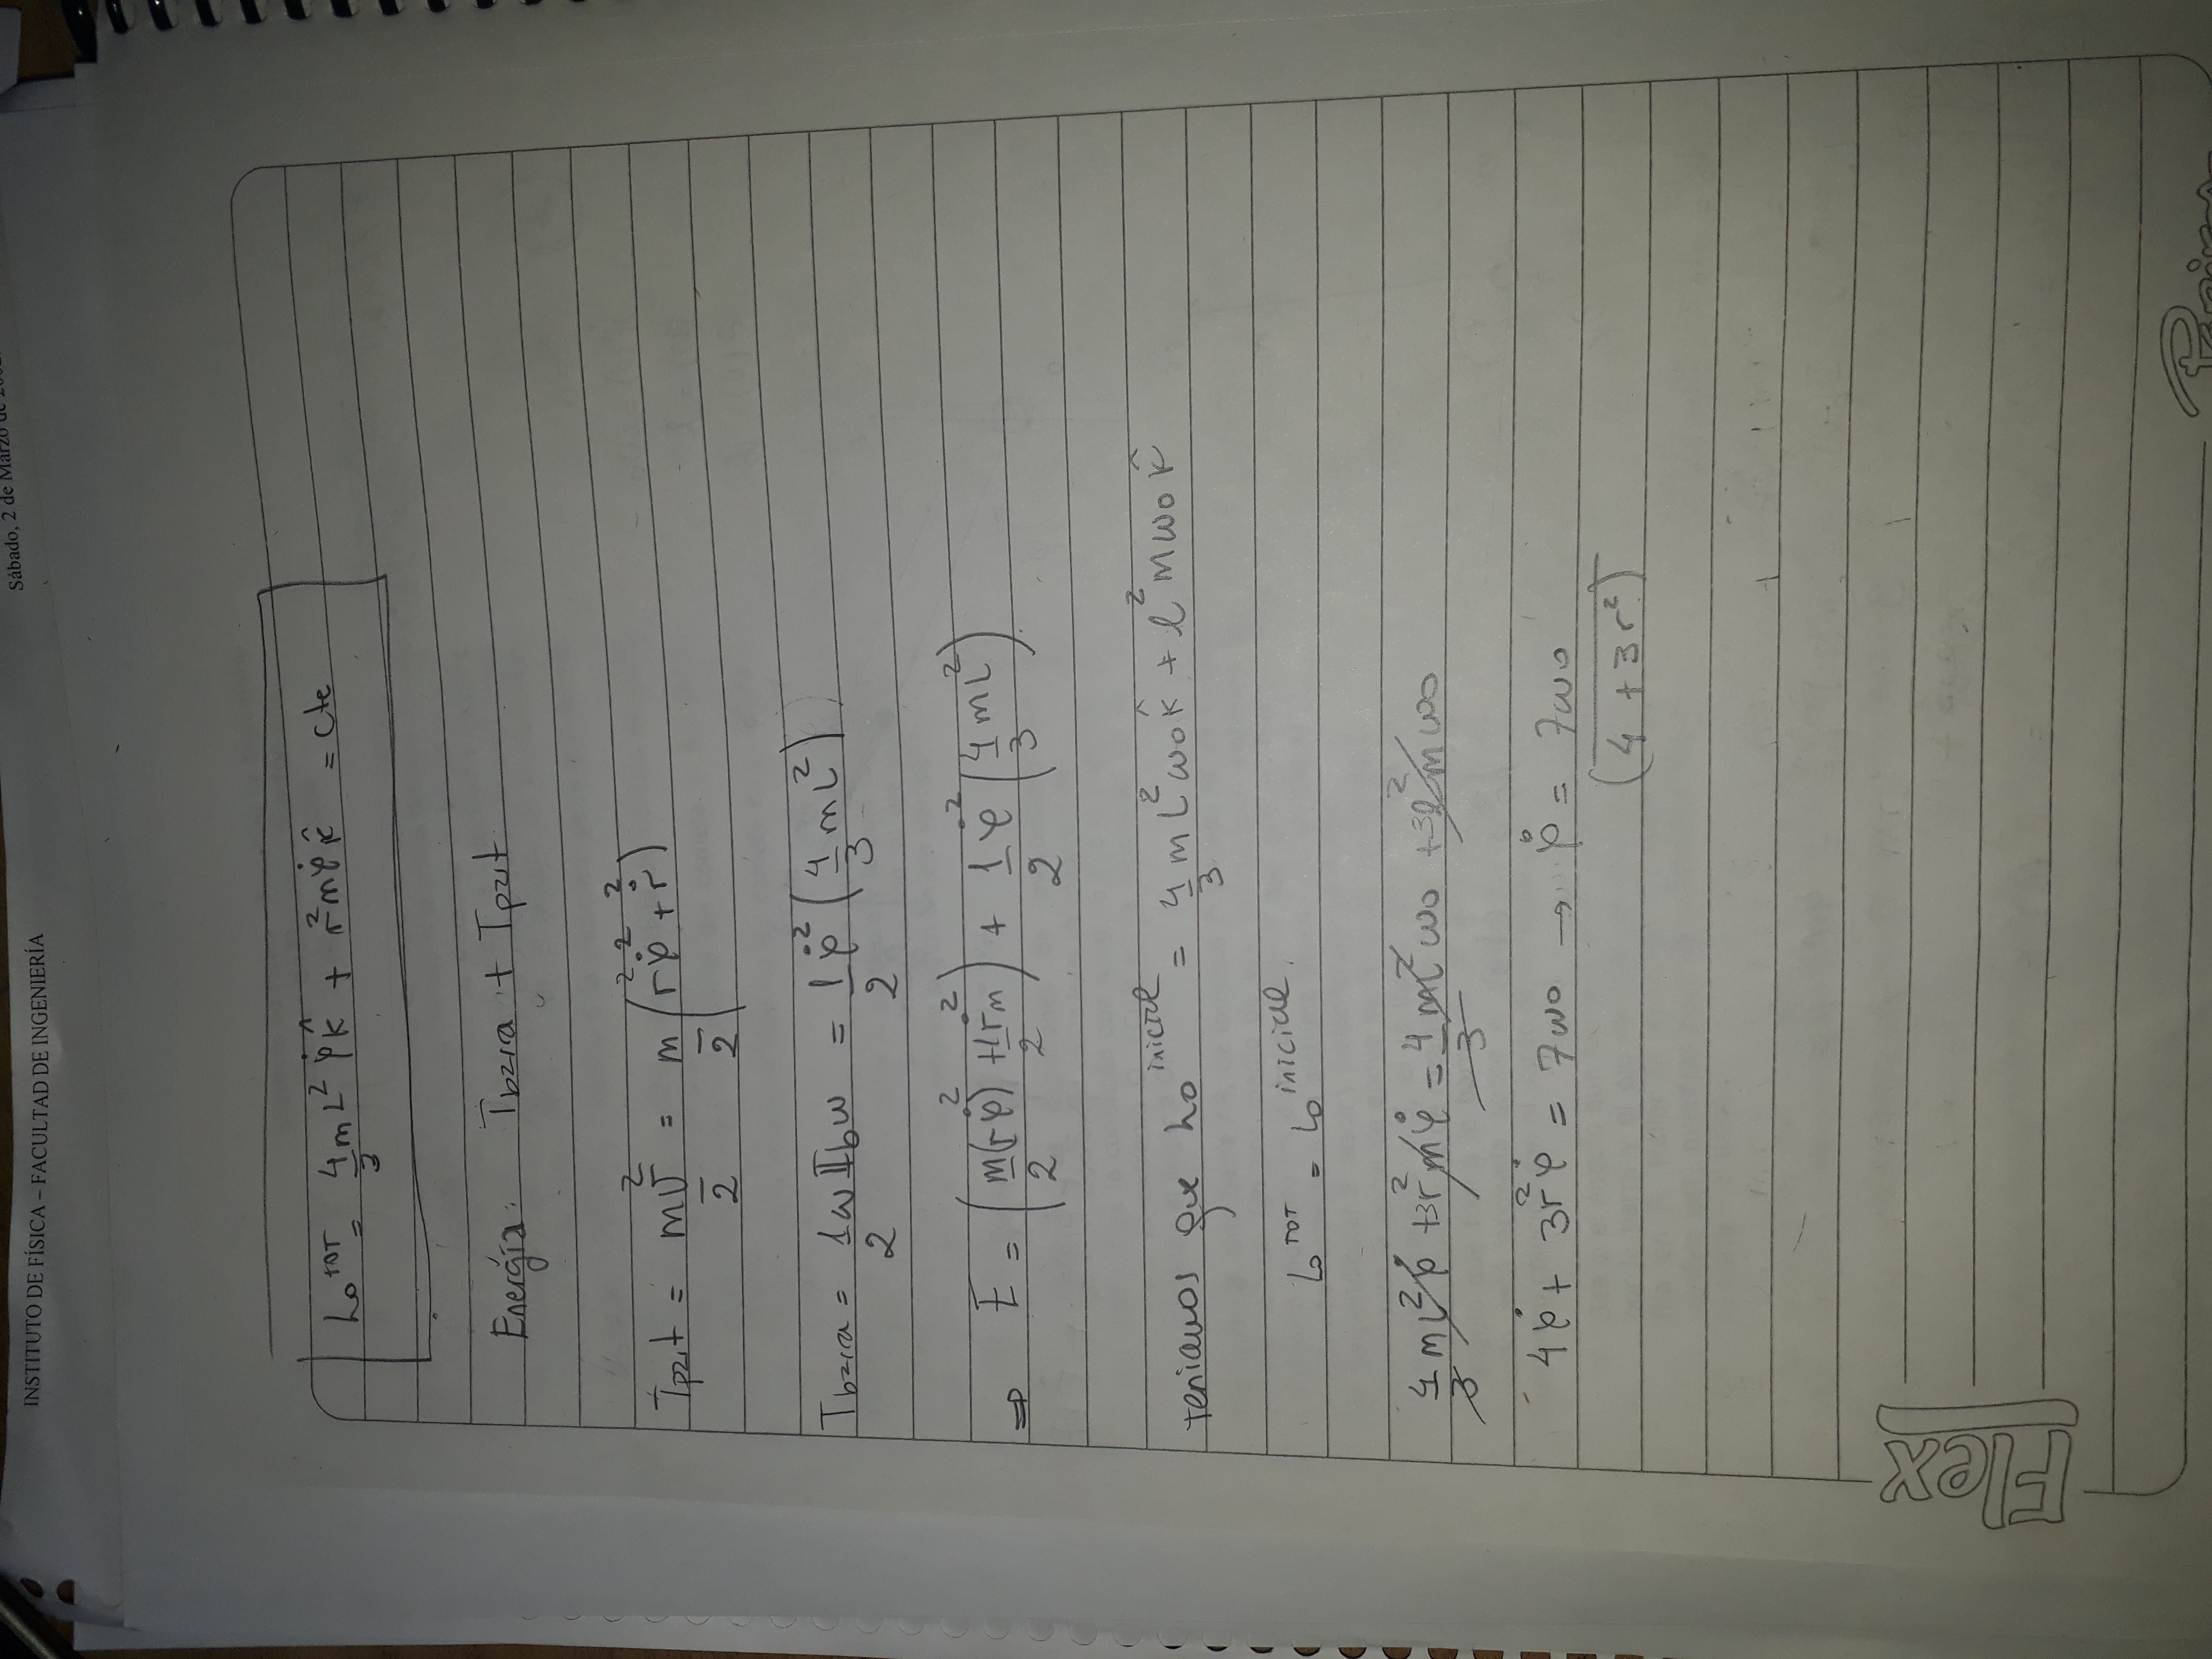 INSTITUTO DE FÍSICA – FACULTAD DE INGENIERÍA
Sábado, 2 de Marzo de
Lo^TOT = 4/3 mL² φ̇ k̂ + r² m φ̇ k̂ = cte
Energía: Tbarra + Tpart
Tpart = m/2 v² = m/2 (r²φ̇² + ṙ²)
Tbarra = 1/2 w 𝕀b w = 1/2 φ̇² (4/3 mL²)
⇒ E = (m/2 (rφ̇)² + 1/2 ṙ² m) + 1/2 φ̇² (4/3 mL²)
teniamos que Lo^inicial = 4/3 mL² wo k̂ + l² m wo k̂
Lo^TOT = Lo^inicial.
4/3 mL² φ̇ + 3r² m φ̇ / 3 = 4/3 ml² wo + 3l² m wo
4φ̇ + 3r²φ̇ = 7wo → φ̇ = 7wo / (4 + 3r²)
Flex